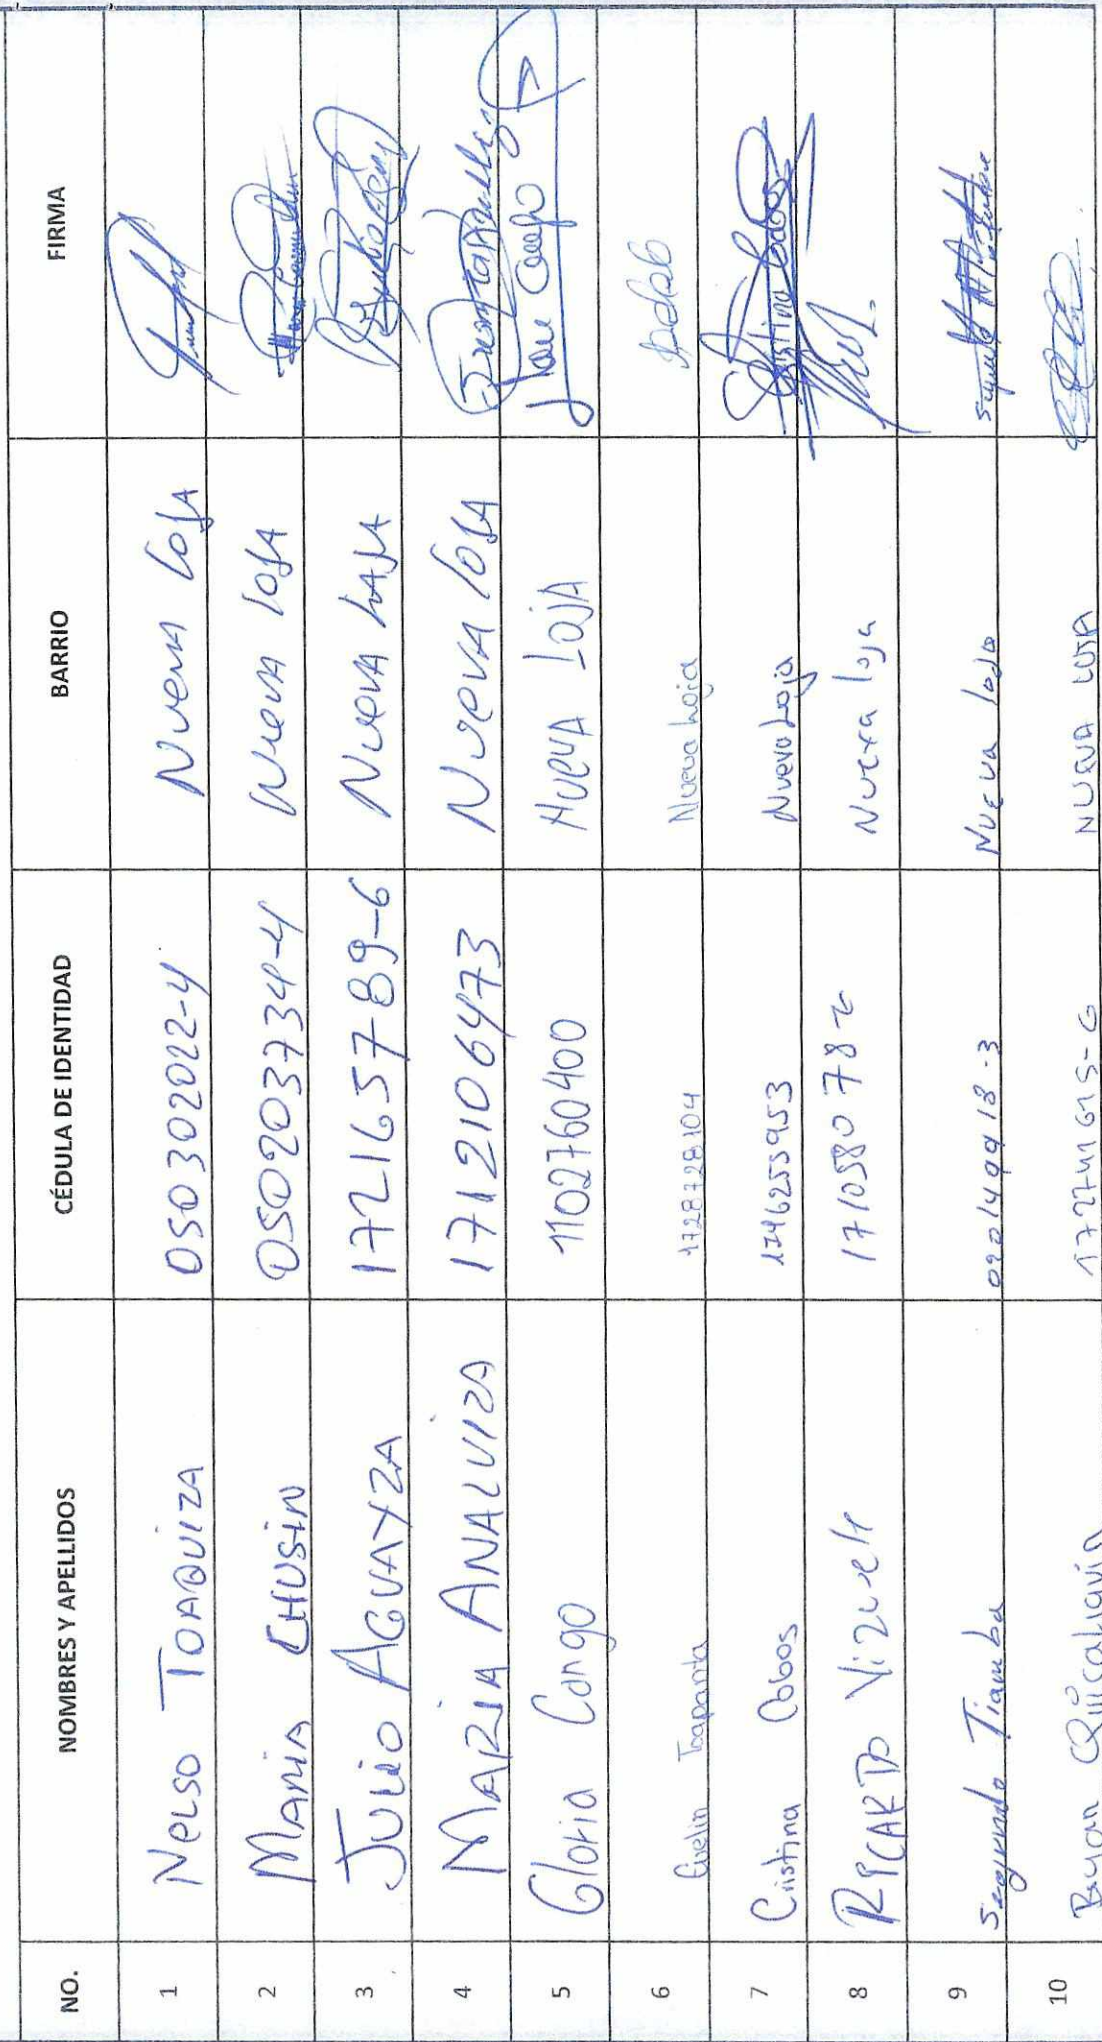 NO. NOMBRES Y APELLIDOS CÉDULA DE IDENTIDAD BARRIO FIRMA
1 Nelso TOAQUIZA 050302022-4 Nueva LOJA
2 Maria CHUSIN 050203734-4 Nueva LOJA
3 Julio AGUAYZA 172165789-6 Nueva LAJA
4 MARIA ANALUIZA 1712106473 Nueva LOJA
5 Gloria Congo 1102760400 NUEVA LOJA
6 Evelin Toapanta 1728728104 Nueva Loja
7 Cristina Cobos 1746255953 Nueva Loja Cristina Cobos
8 RICARDO Vizuete 171058078 Nueva loja
9 Segundo Tiamba 020149918-3 Nueva loja
10 Bryan Quisaliquin NUEVA LOJA